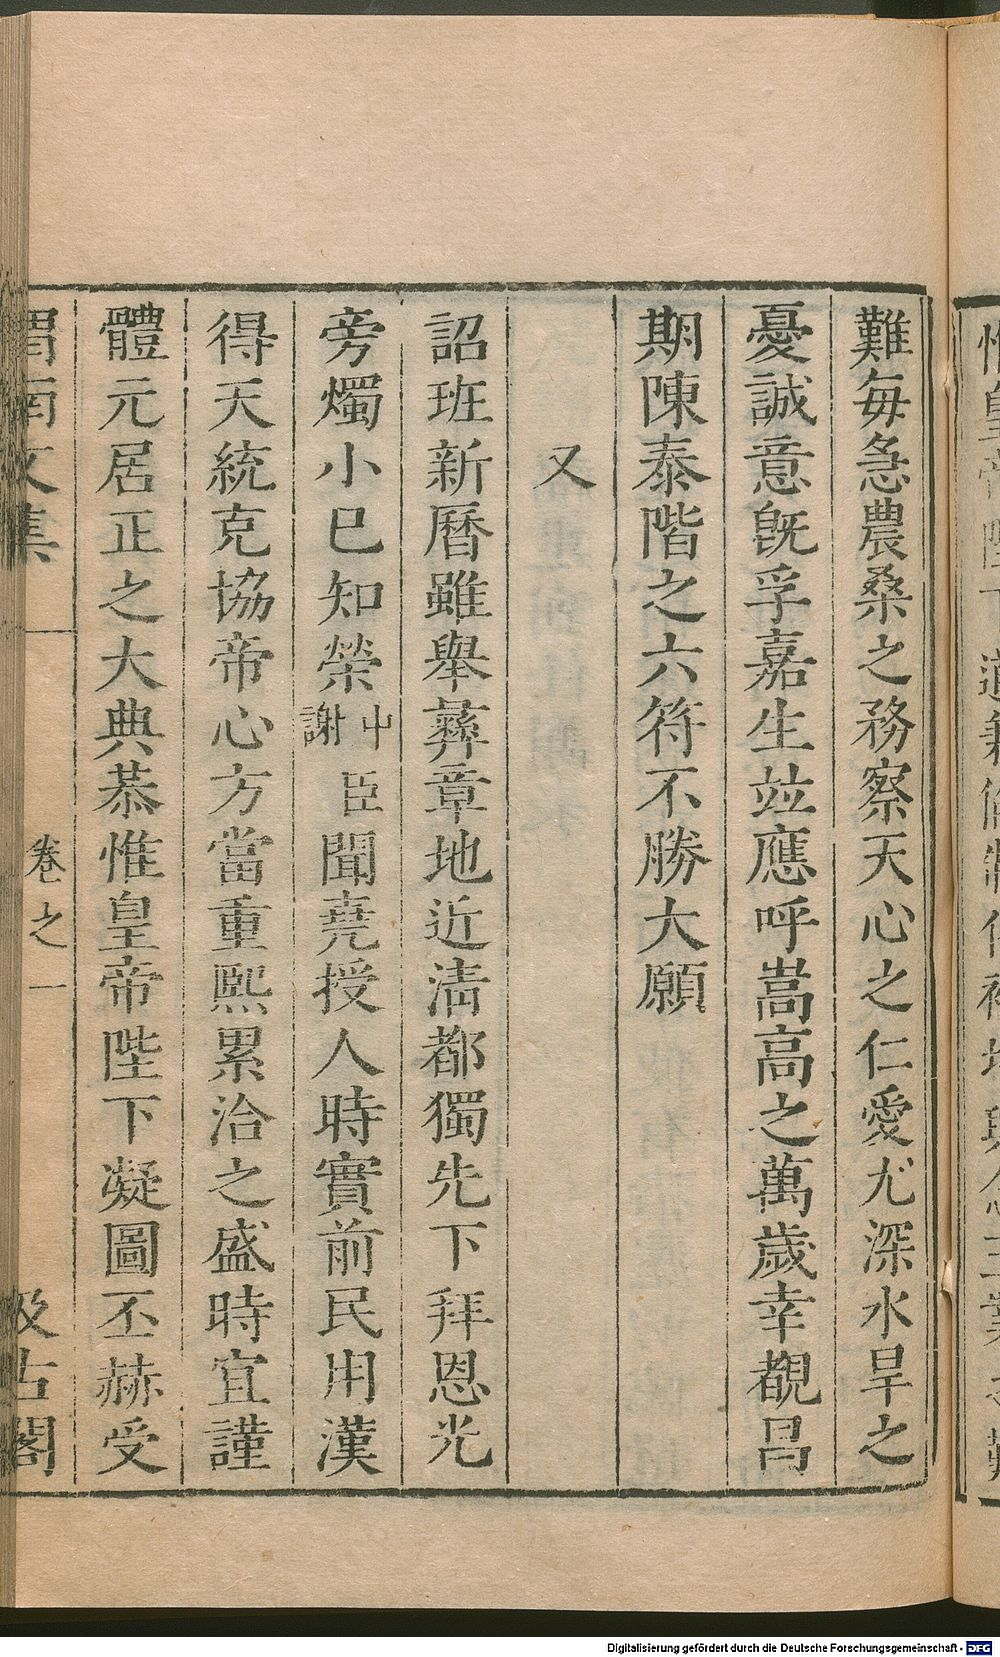 難每急農桑之務察天心之仁愛尤深水旱之
憂誠意旣孚嘉生竝應呼嵩高之萬歲幸覩昌
期陳泰階之六符不勝大願
又
詔班新曆雖舉彝章地近淸都獨先下拜恩光
旁燭小巳知榮中謝臣聞堯授人時實前民用漢
得天統克協帝心方當重熙累洽之盛時宜謹
體元居正之大典恭惟皇帝陛下凝圖丕赫受
渭南文集 卷之一 汲古閣
Digitalisierung gefördert durch die Deutsche Forschungsgemeinschaft - DFG